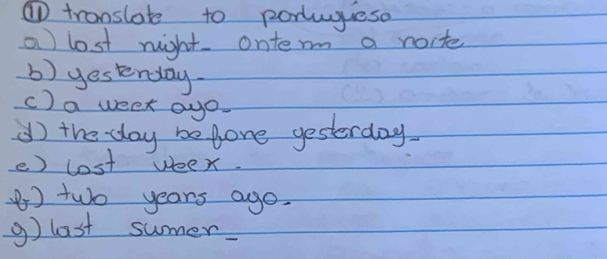 11) translate to portuguieso
a) last night - ontem a noite
b) yesterday -
c) a week ago -
d) the day before yesterday -
e) last week -
f) two years ago -
g) last sumer -